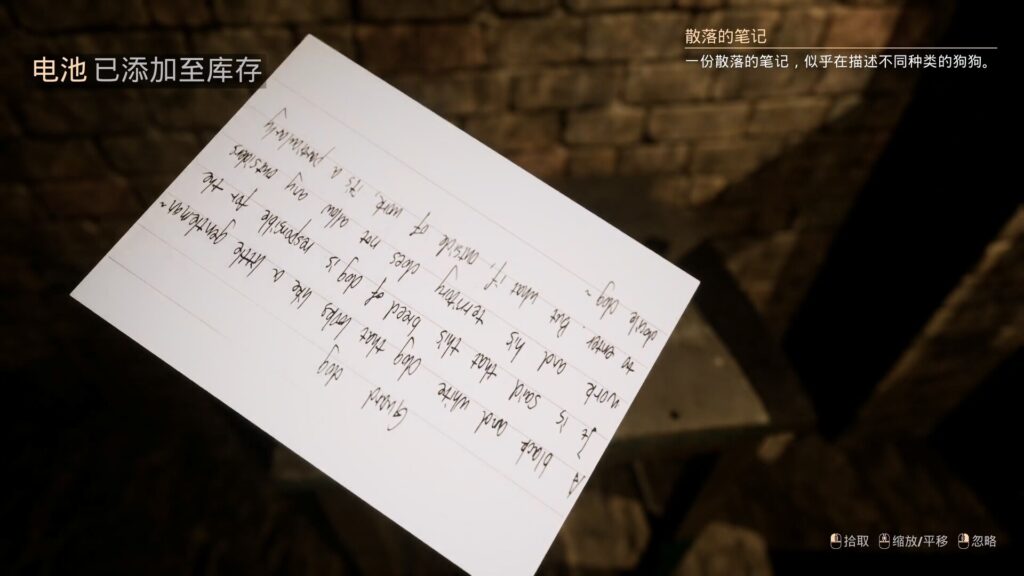 电池 已添加至库存
散落的笔记
一份散落的笔记，似乎在描述不同种类的狗狗。
Guard dog
A black and white dog that looks like a little gentleman~
It is said that this breed of dog is responsible for the
work and his territory does not allow any outsides
to enter. But what if, outside of work, it's a particularly
docile dog~
拾取 缩放/平移 忽略